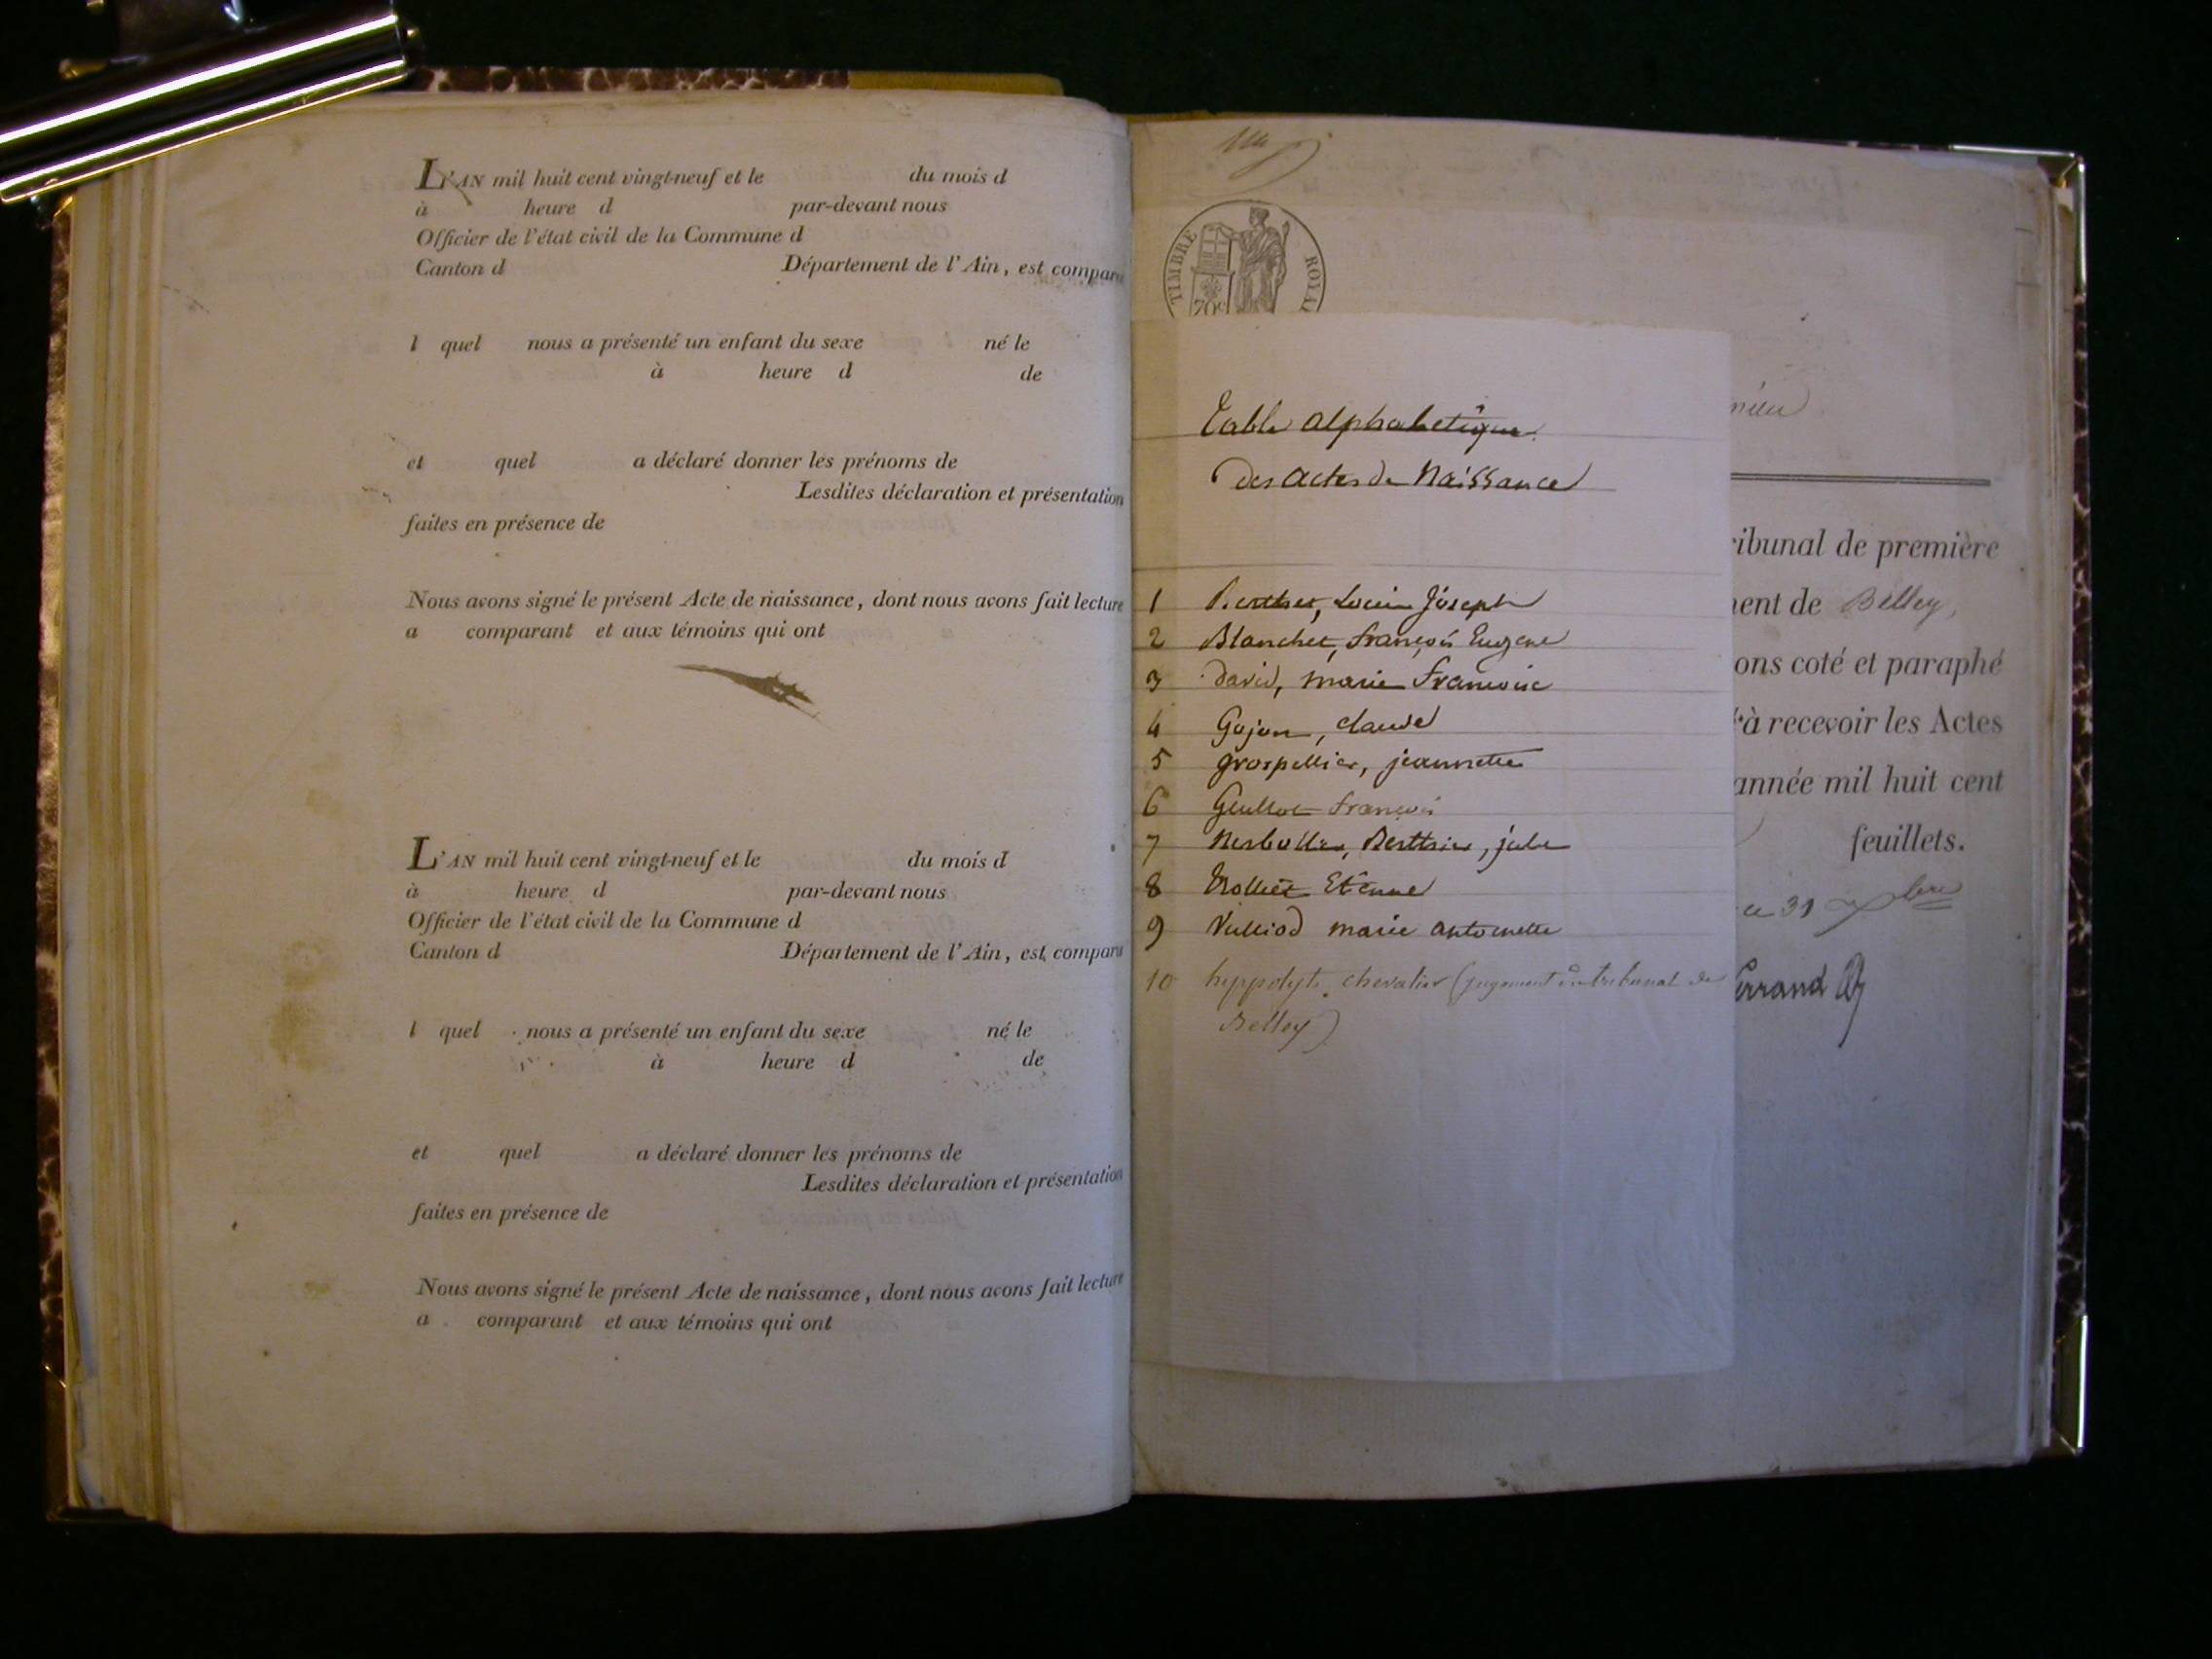 L'AN mil huit cent vingt-neuf et le du mois d
à heure d par-devant nous
Officier de l'état civil de la Commune d
Canton d Département de l'Ain, est comparu
l quel nous a présenté un enfant du sexe né le
à heure d de
et quel a déclaré donner les prénoms de
Lesdites déclaration et présentation
faites en présence de
Nous avons signé le présent Acte de naissance, dont nous avons fait lecture
a comparant et aux témoins qui ont
L'AN mil huit cent vingt-neuf et le du mois d
à heure d par-devant nous
Officier de l'état civil de la Commune d
Canton d Département de l'Ain, est comparu
l quel nous a présenté un enfant du sexe né le
à heure d de
et quel a déclaré donner les prénoms de
Lesdites déclaration et présentation
faites en présence de
Nous avons signé le présent Acte de naissance, dont nous avons fait lecture
a comparant et aux témoins qui ont
TIMBRE ROYAL
70c
Table alphabetique
des actes de Naissance
1 Joseph
2 Blanchet, françois Eugene
3 david, marie francoise
4 Gojon, claude
5 grospellier, jeannette
6 françois
7
8 Etienne
9 Vulliod marie antoinette
10 hyppolyte chevalier (jugement du tribunal de
Belley)
ribunal de première
nent de Belley,
ons coté et paraphé
à recevoir les Actes
année mil huit cent
feuillets.
ce 31 xbre